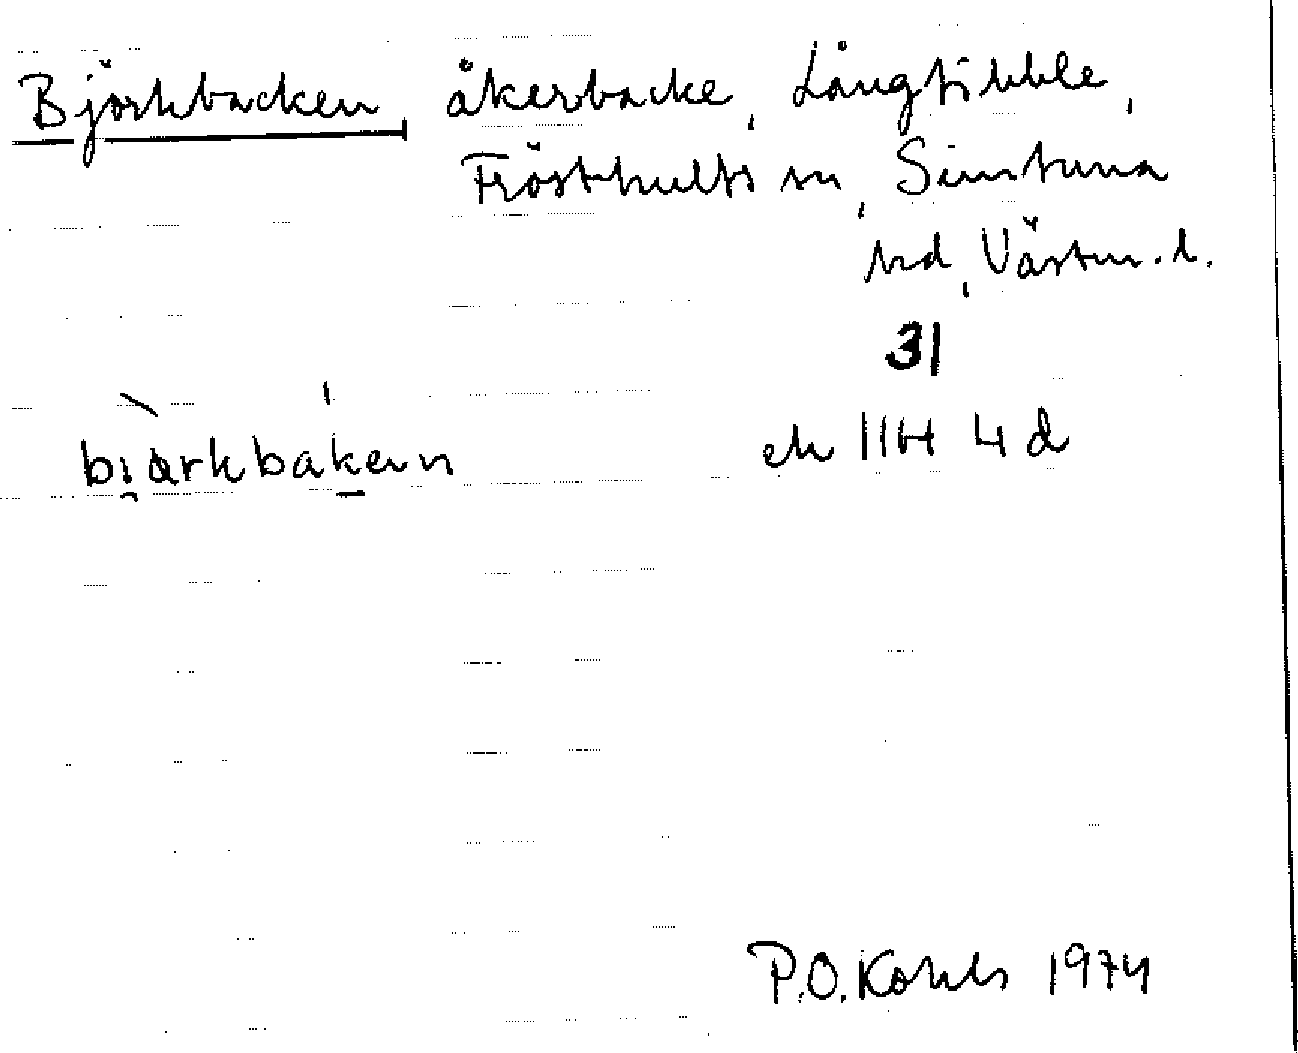 Björkbacken åkerbacke, Långtibble,
Frösthults sn, Simtuna
hd, Västm. l.
31
bjarkbaken ek 11H 4 d
P.O. Kohls 1974